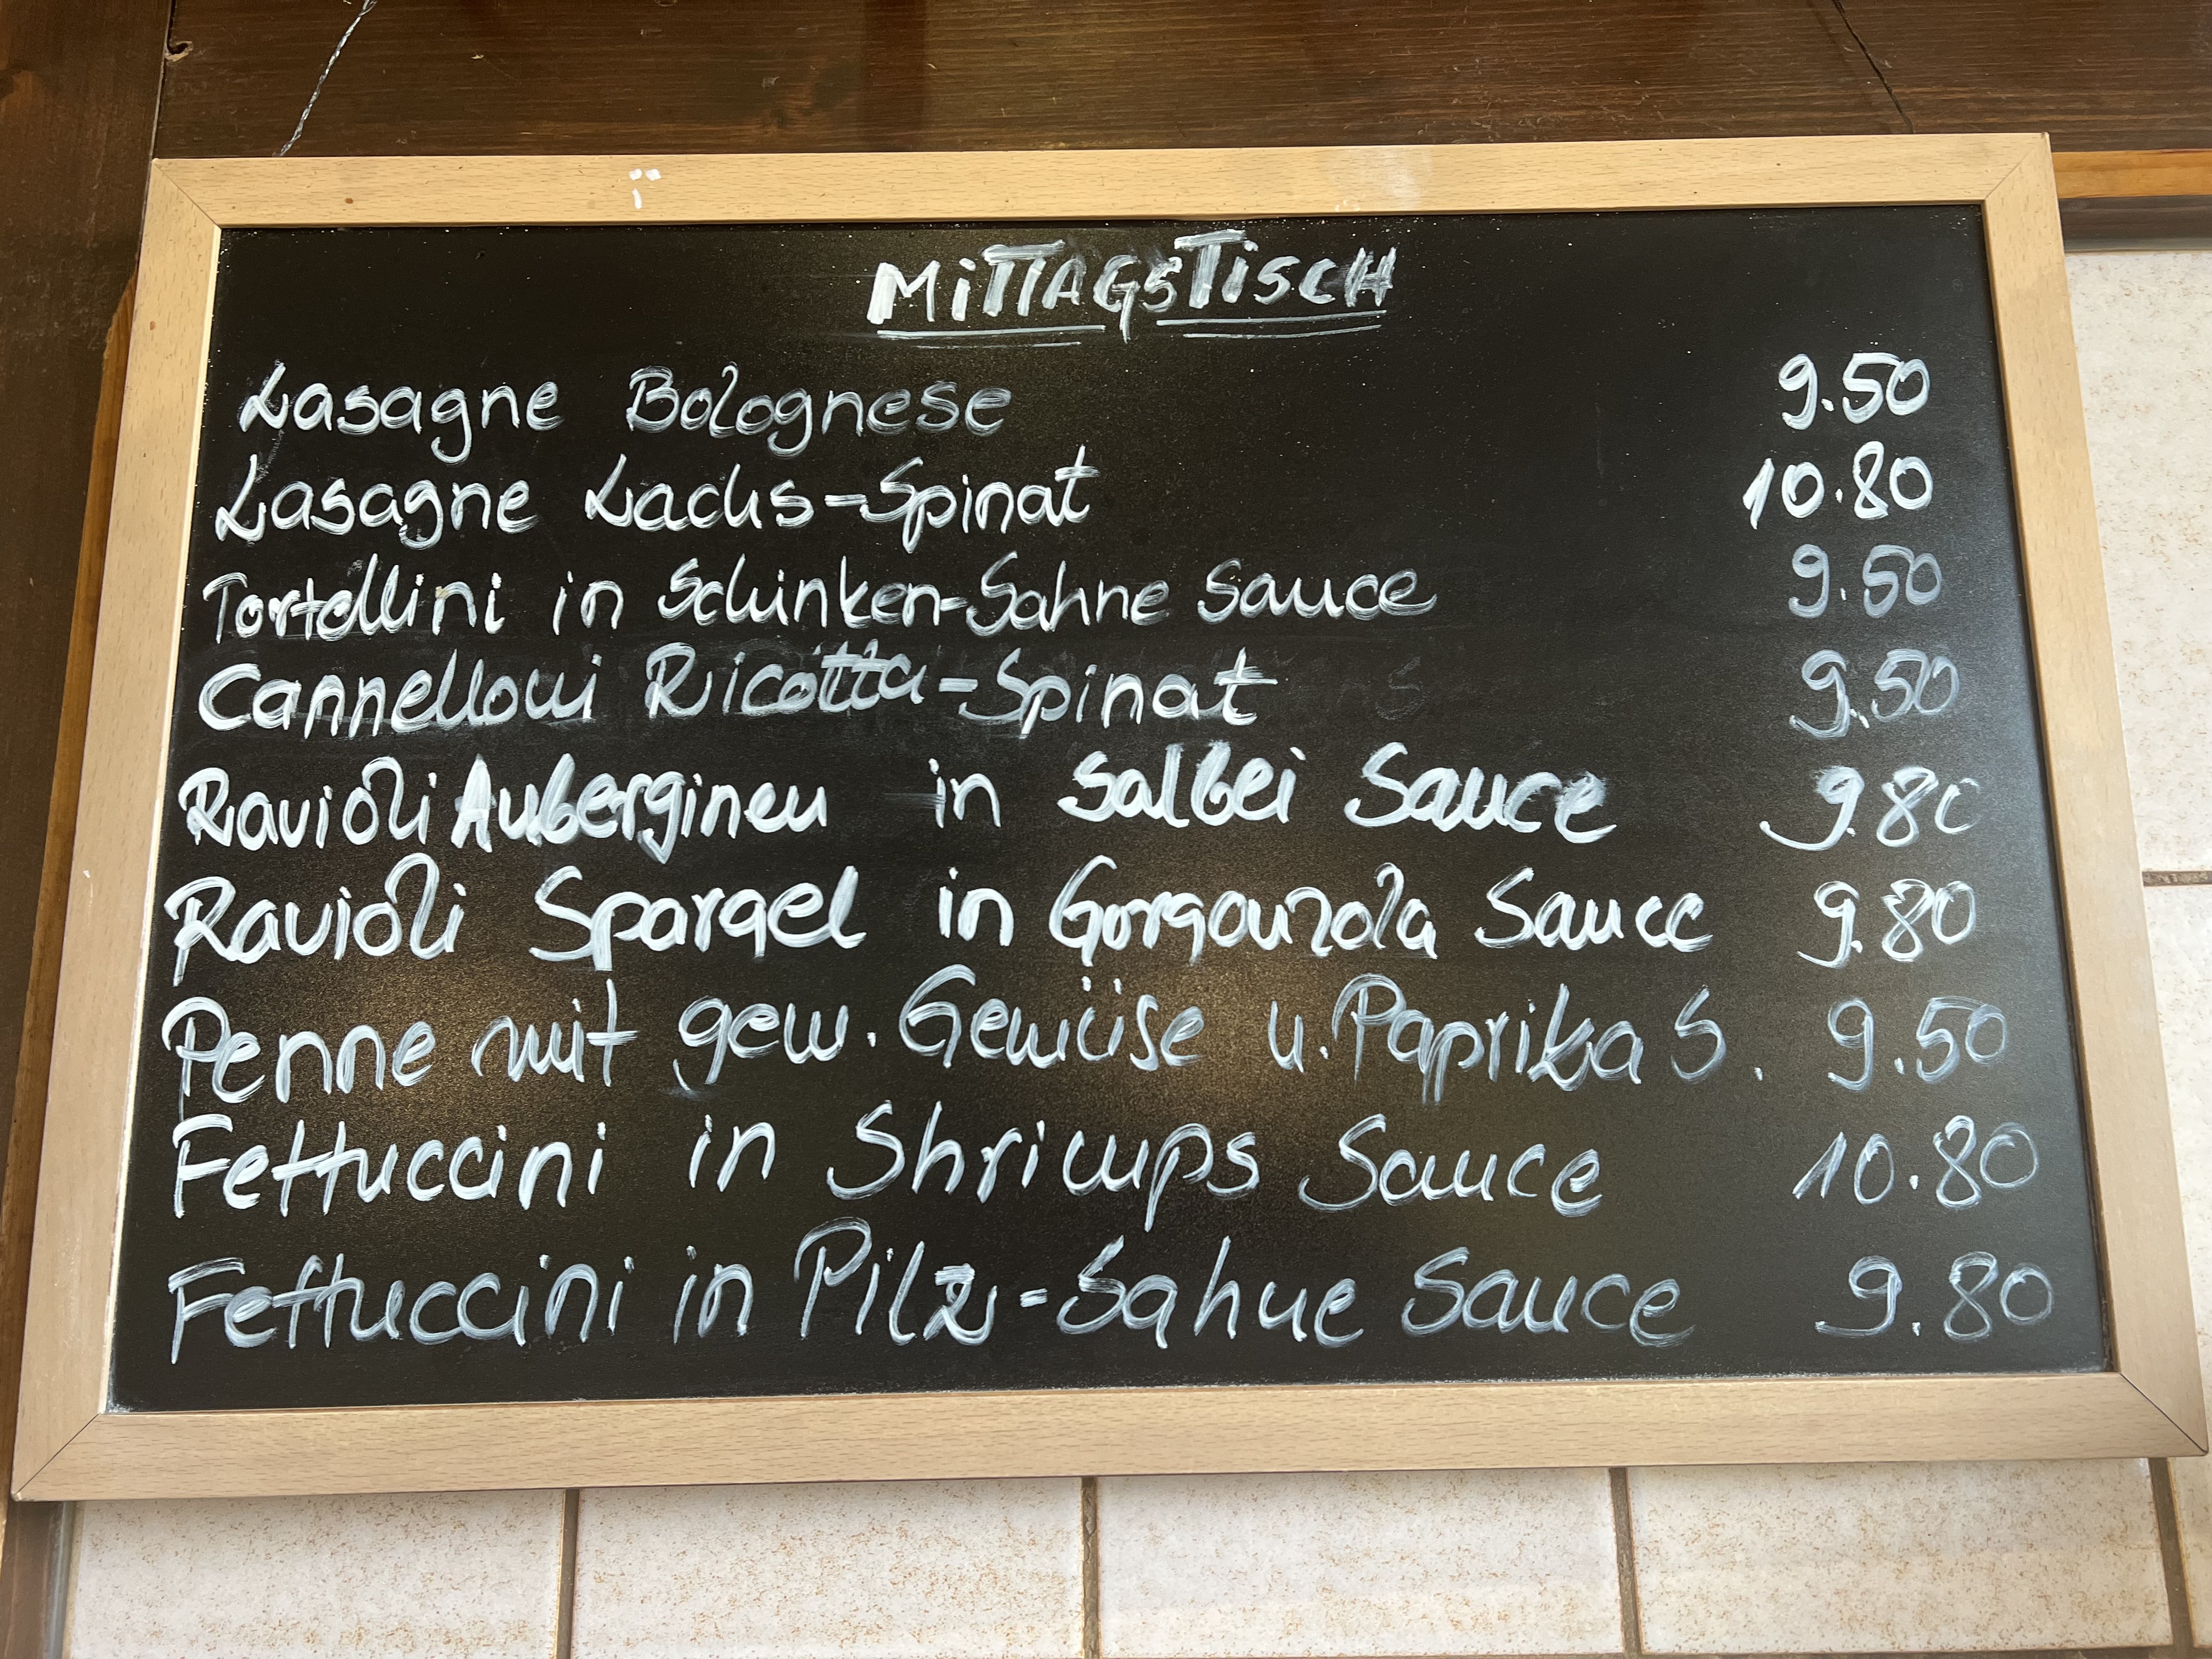 MiTTAGSTiSCH
Lasagne Bolognese 9.50
Lasagne Lachs-Spinat 10.80
Tortellini in Schinken-Sahne Sauce 9.50
Cannelloni Ricotta-Spinat 9.50
Ravioli Auberginen in Salbei Sauce 9.80
Ravioli Spargel in Gorgonzola Sauce 9.80
Penne mit gew. Gemüse u. Paprika S. 9.50
Fettuccini in Shrimps Sauce 10.80
Fettuccini in Pilz-Sahne Sauce 9.80